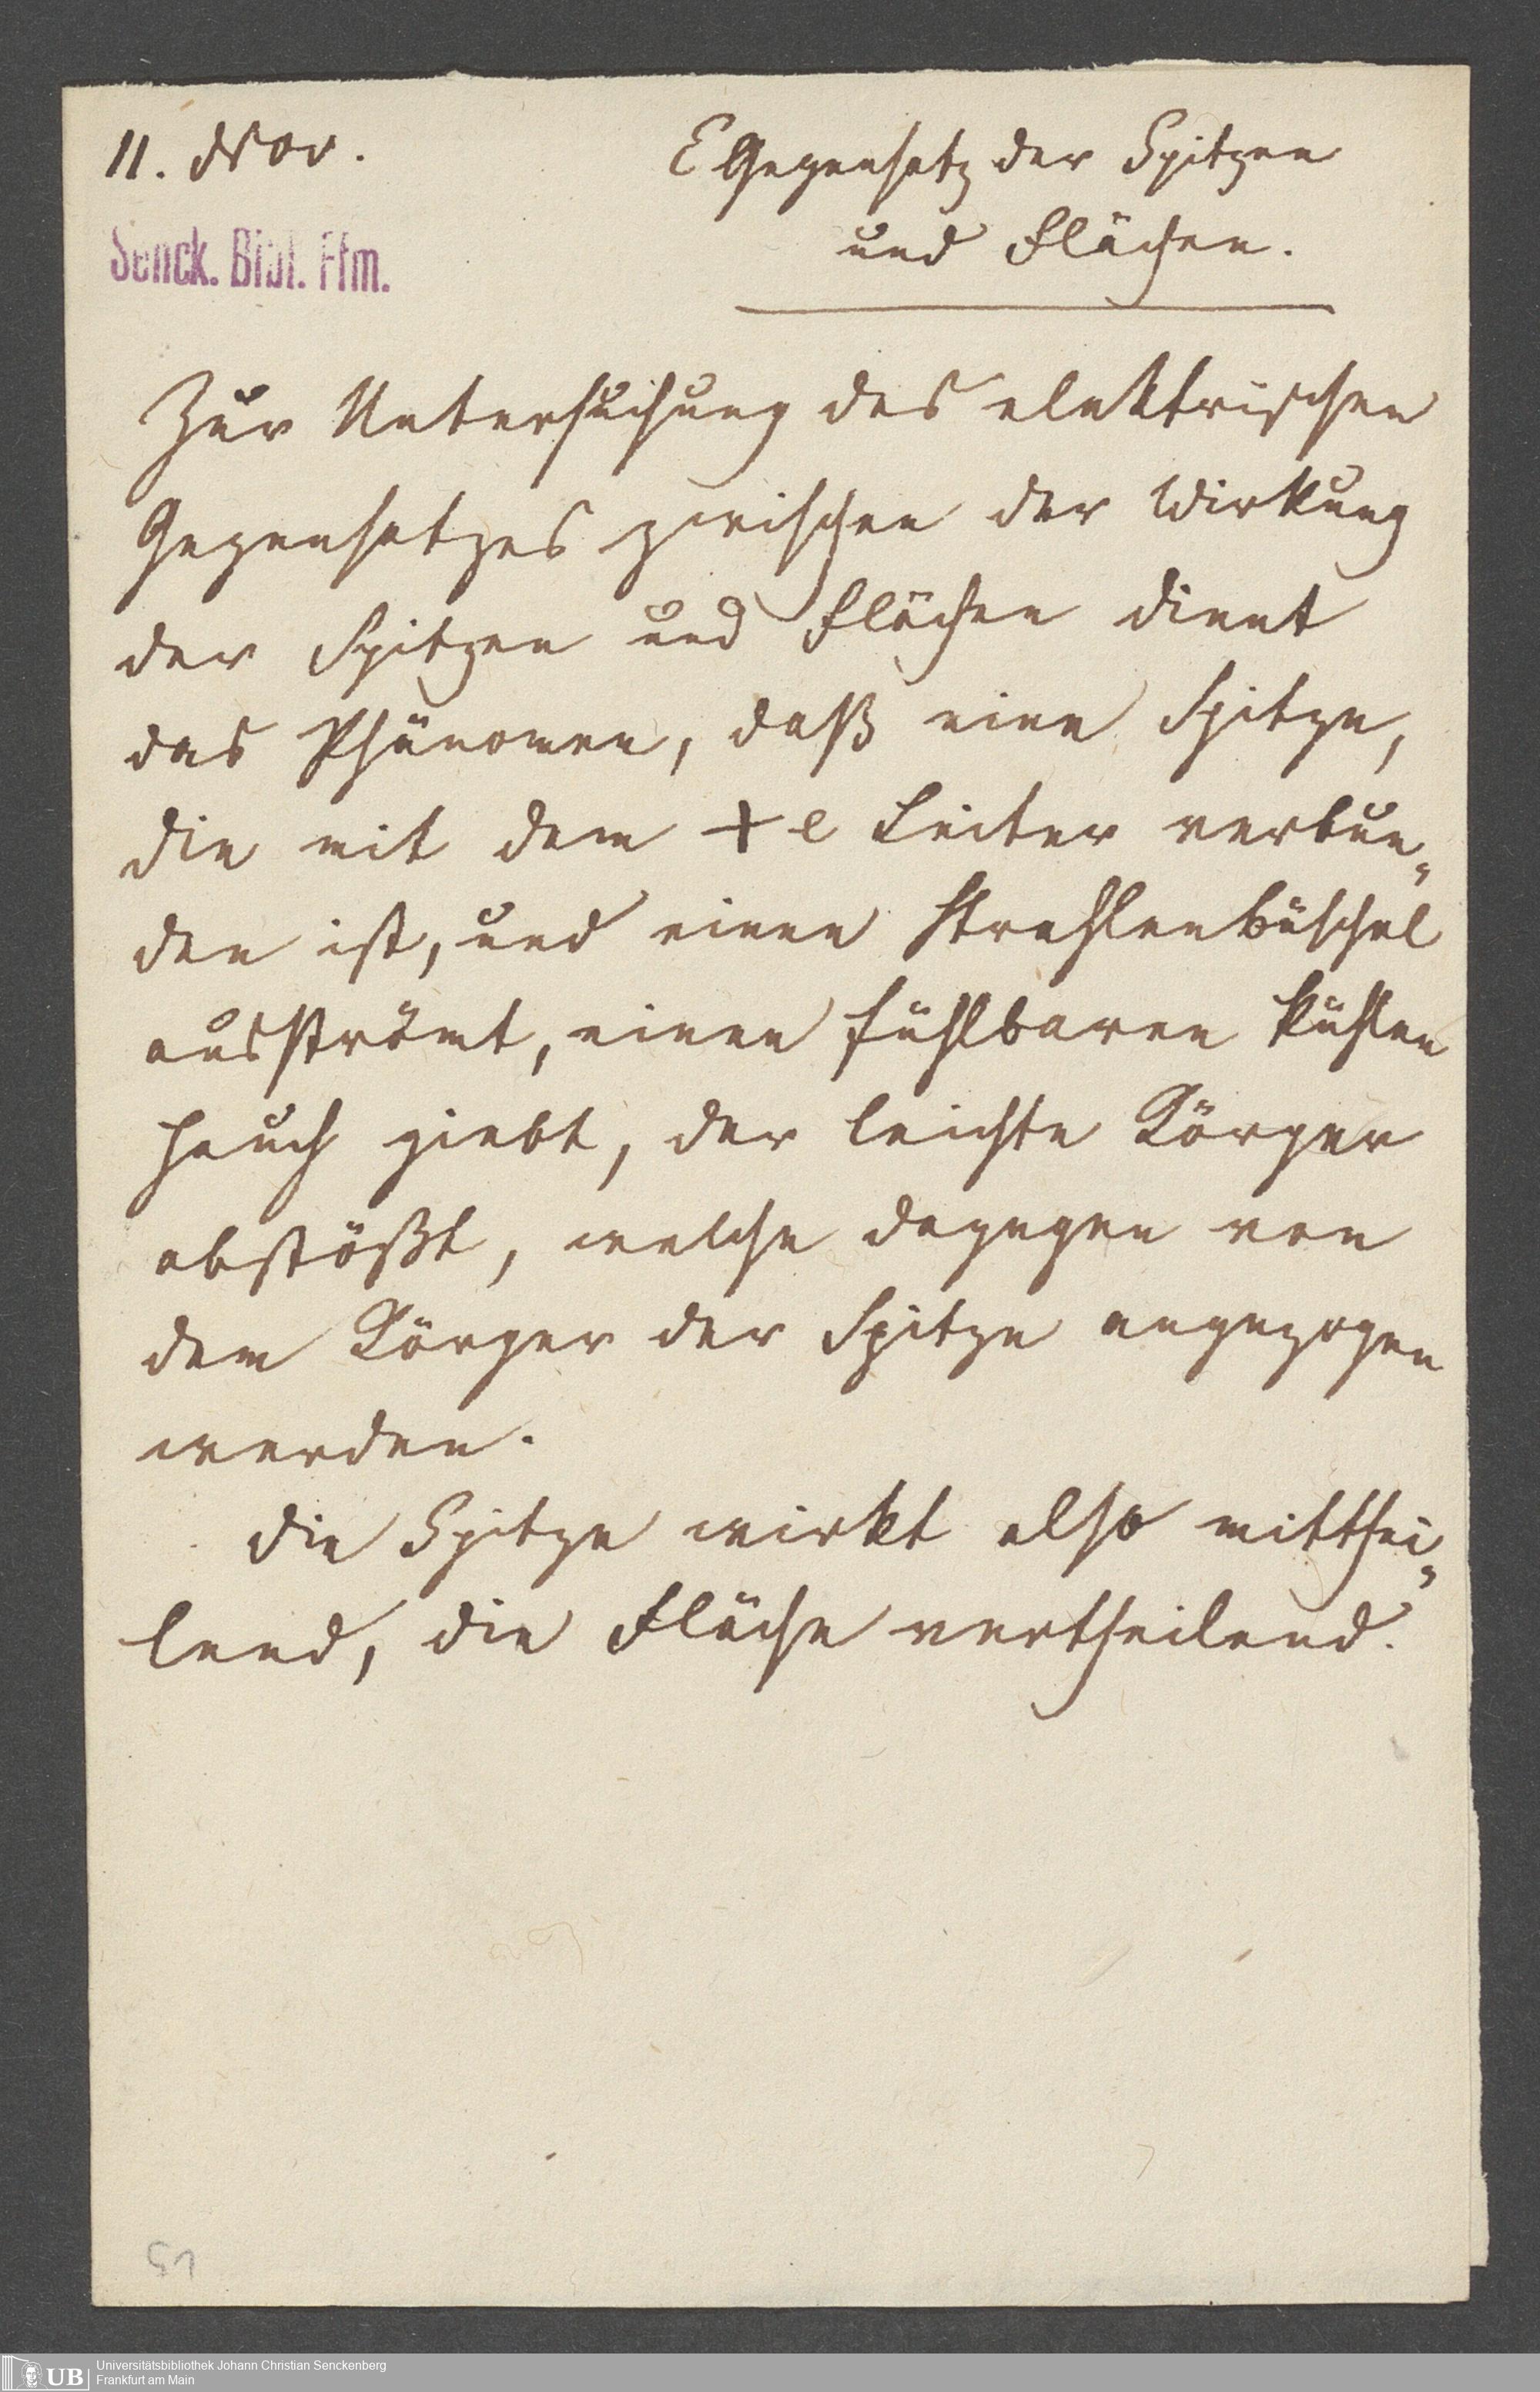 11. Nov.
E Gegensatz der Spitzen
und Flächen.
Senck. Bibl. Ffm.
Zur Untersuchung des elektrischen
Gegensatzes zwischen der Wirkung
der Spitzen und Flächen dient
das Phänomen, daß eine Spitze,
die mit dem + e Leiter verbun-
den ist, und einen Strahlenbüschel
ausströmt, einen fühlbaren kühlen
Hauch giebt, der leichte Körper
abstößt, welche dagegen von
dem Körper der Spitze angezogen
werden.
Die Spitze wirkt also mitthei-
lend, die Fläche vertheilend.
51
UB
Universitätsbibliothek Johann Christian Senckenberg
Frankfurt am Main